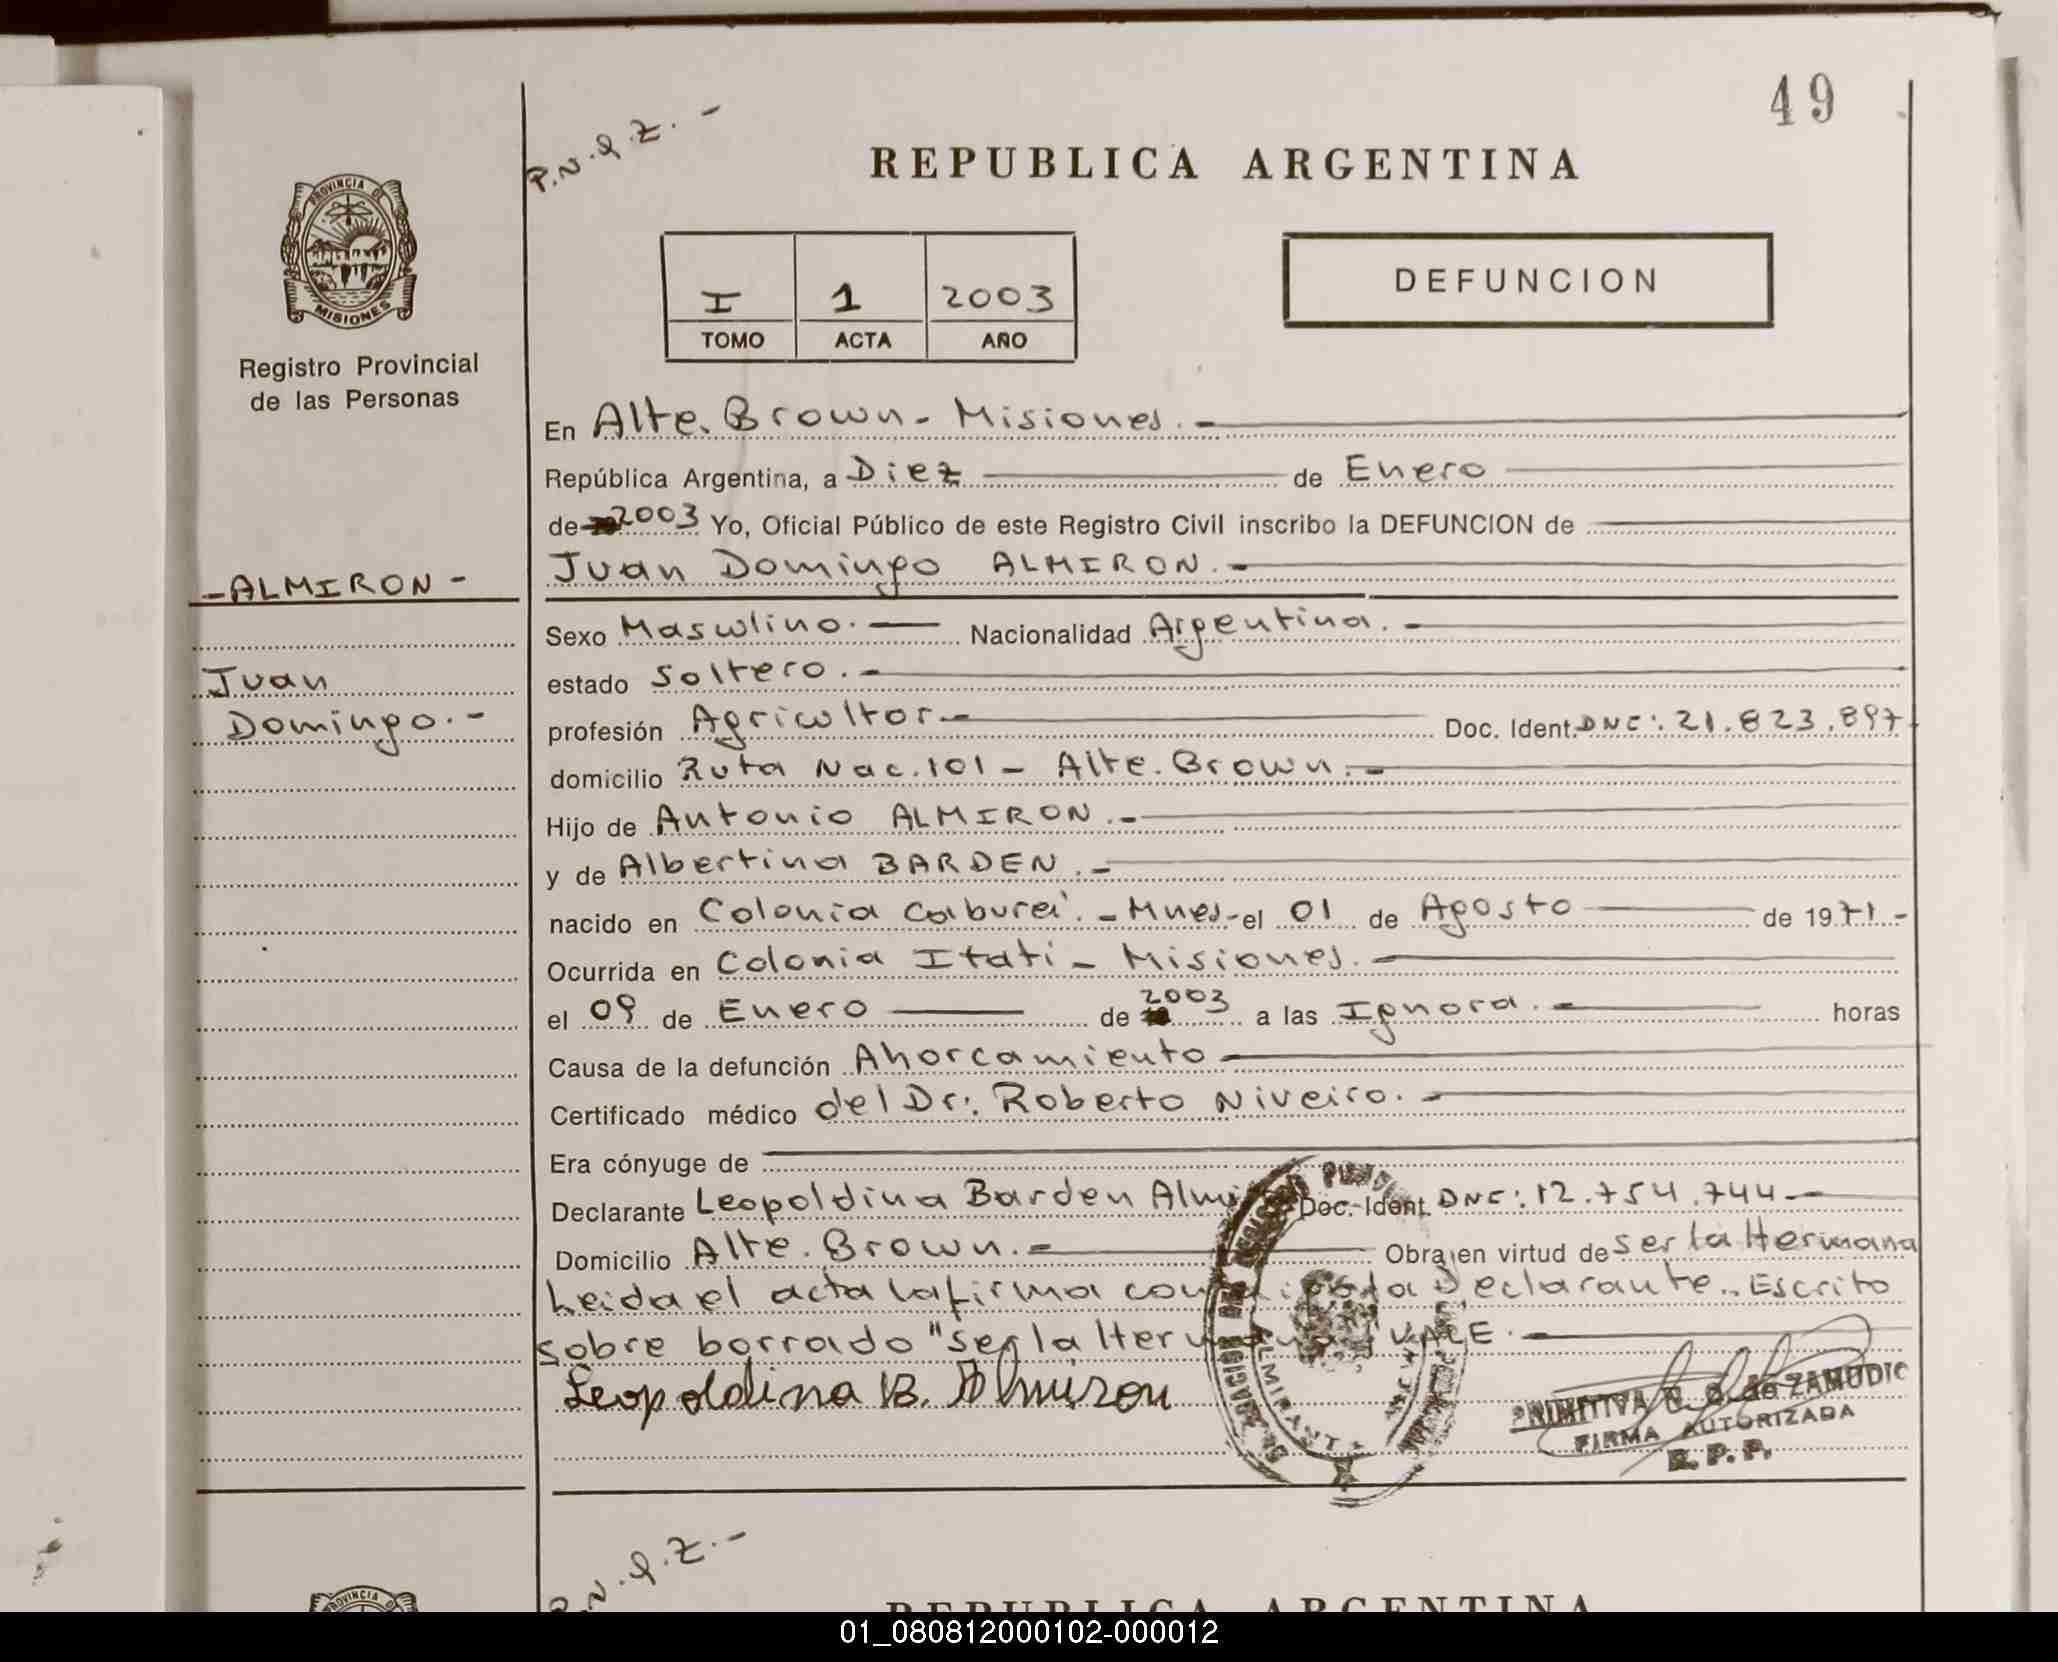 49
P.N.Q.Z.-
REPUBLICA ARGENTINA
PROVINCIA DE
MISIONES
Registro Provincial
de las Personas
I 1 2003
TOMO ACTA AÑO
DEFUNCION
En Alte. Brown - Misiones.-
República Argentina, a Diez de Enero
de 2003 Yo, Oficial Público de este Registro Civil inscribo la DEFUNCION de
Juan Domingo ALMIRON.-
-ALMIRON-
Juan
Domingo.-
Sexo Masculino.- Nacionalidad Argentina.-
estado Soltero.-
profesión Agricultor- Doc. Ident. DNI: 21.823.897
domicilio Ruta Nac. 101 - Alte. Brown.-
Hijo de Antonio ALMIRON.-
y de Albertina BARDEN.-
nacido en Colonia Caburei. - Mnes- el 01 de Agosto de 1971.-
Ocurrida en Colonia Itati - Misiones.-
el 09 de Enero de 2003 a las Ignora.- horas
Causa de la defunción Ahorcamiento
Certificado médico del Dr: Roberto Niveiro.-
Era cónyuge de
Declarante Leopoldina Barden Doc. Ident. DNI: 12.754.744.-
Domicilio Alte. Brown.- Obra en virtud de ser la Hermana
Leida el acta la firma Declarante.. Escrito
sobre borrado "ser la VALE.-
Leopoldina B. Almiron
PRIMITIVA de ZAMUDIO
FIRMA AUTORIZADA
R.P.P.
.N.Q.Z.-
PROVINCIA
REPUBLICA ARGENTINA
01_080812000102-000012